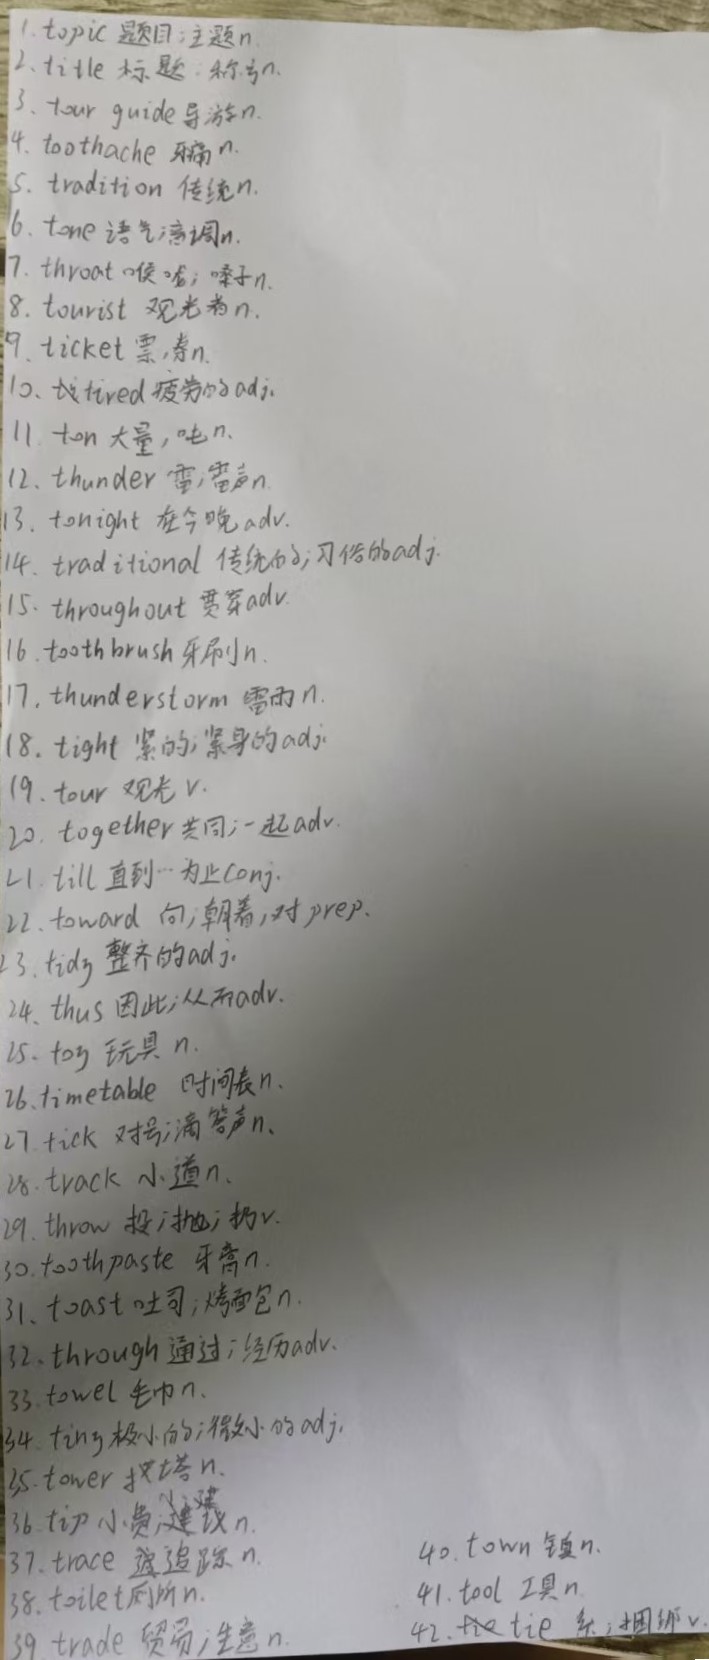 1. topic 题目;主题n.
2. title 标题;称号n.
3. tour guide 导游n.
4. toothache 牙痛n.
5. tradition 传统n.
6. tone 语气;音调n.
7. throat 喉咙;嗓子n.
8. tourist 观光者n.
9. ticket 票,券n.
10. tired 疲劳的adj.
11. ton 大量,吨n.
12. thunder 雷;雷声n.
13. tonight 在今晚adv.
14. traditional 传统的;习俗的adj.
15. throughout 贯穿adv.
16. toothbrush 牙刷n.
17. thunderstorm 雷雨n.
18. tight 紧的;紧身的adj.
19. tour 观光v.
20. together 共同;一起adv.
21. till 直到…为止conj.
22. toward 向;朝着,对prep.
23. tidy 整齐的adj.
24. thus 因此;从而adv.
25. toy 玩具n.
26. timetable 时间表n.
27. tick 对号;滴答声n.
28. track 小道n.
29. throw 投;抛;扔v.
30. toothpaste 牙膏n.
31. toast 吐司;烤面包n.
32. through 通过;经历adv.
33. towel 毛巾n.
34. tiny 极小的;微小的adj.
35. tower 塔n.
36. tip 小费;建议n.
37. trace 追踪n.
38. toilet 厕所n.
39. trade 贸易;生意n.
40. town 镇n.
41. tool 工具n.
42. tie 系;捆绑v.